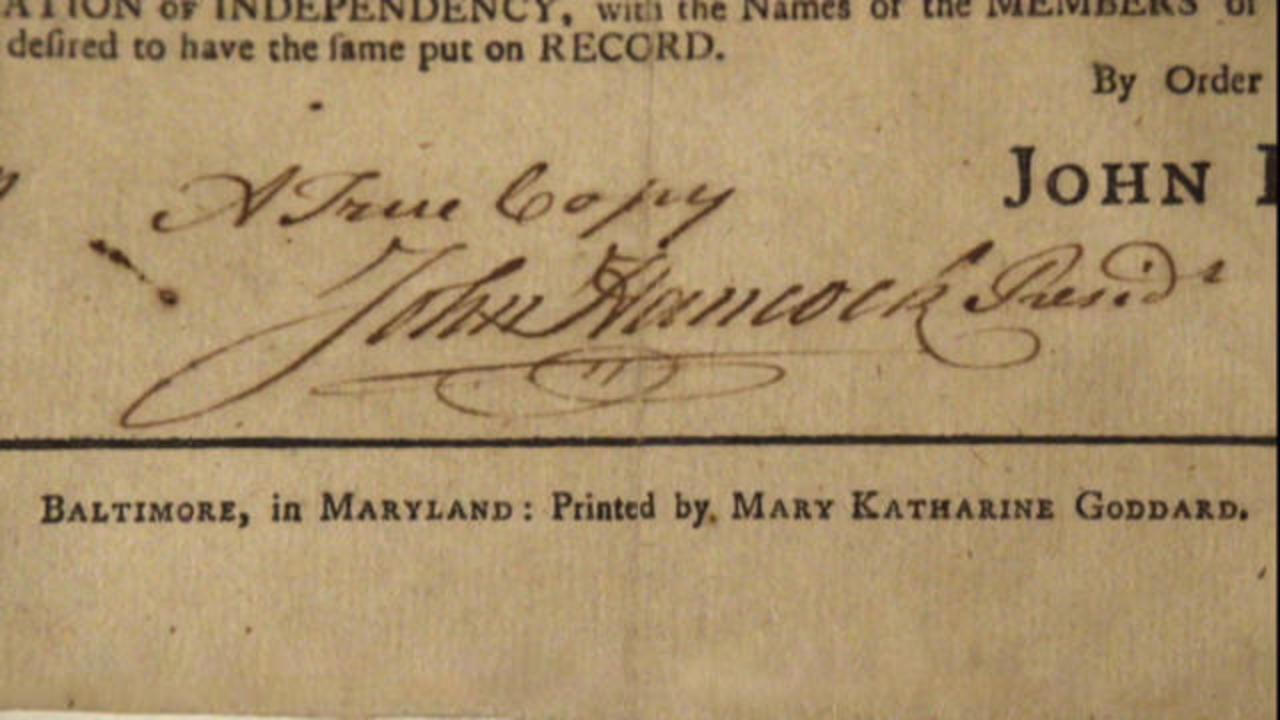 ATION OF INDEPENDENCY, with the Names of the MEMBERS of
deſired to have the ſame put on RECORD.
By Order
A True Copy
JOHN
John Hancock Presidt
BALTIMORE, in MARYLAND: Printed by MARY KATHARINE GODDARD.